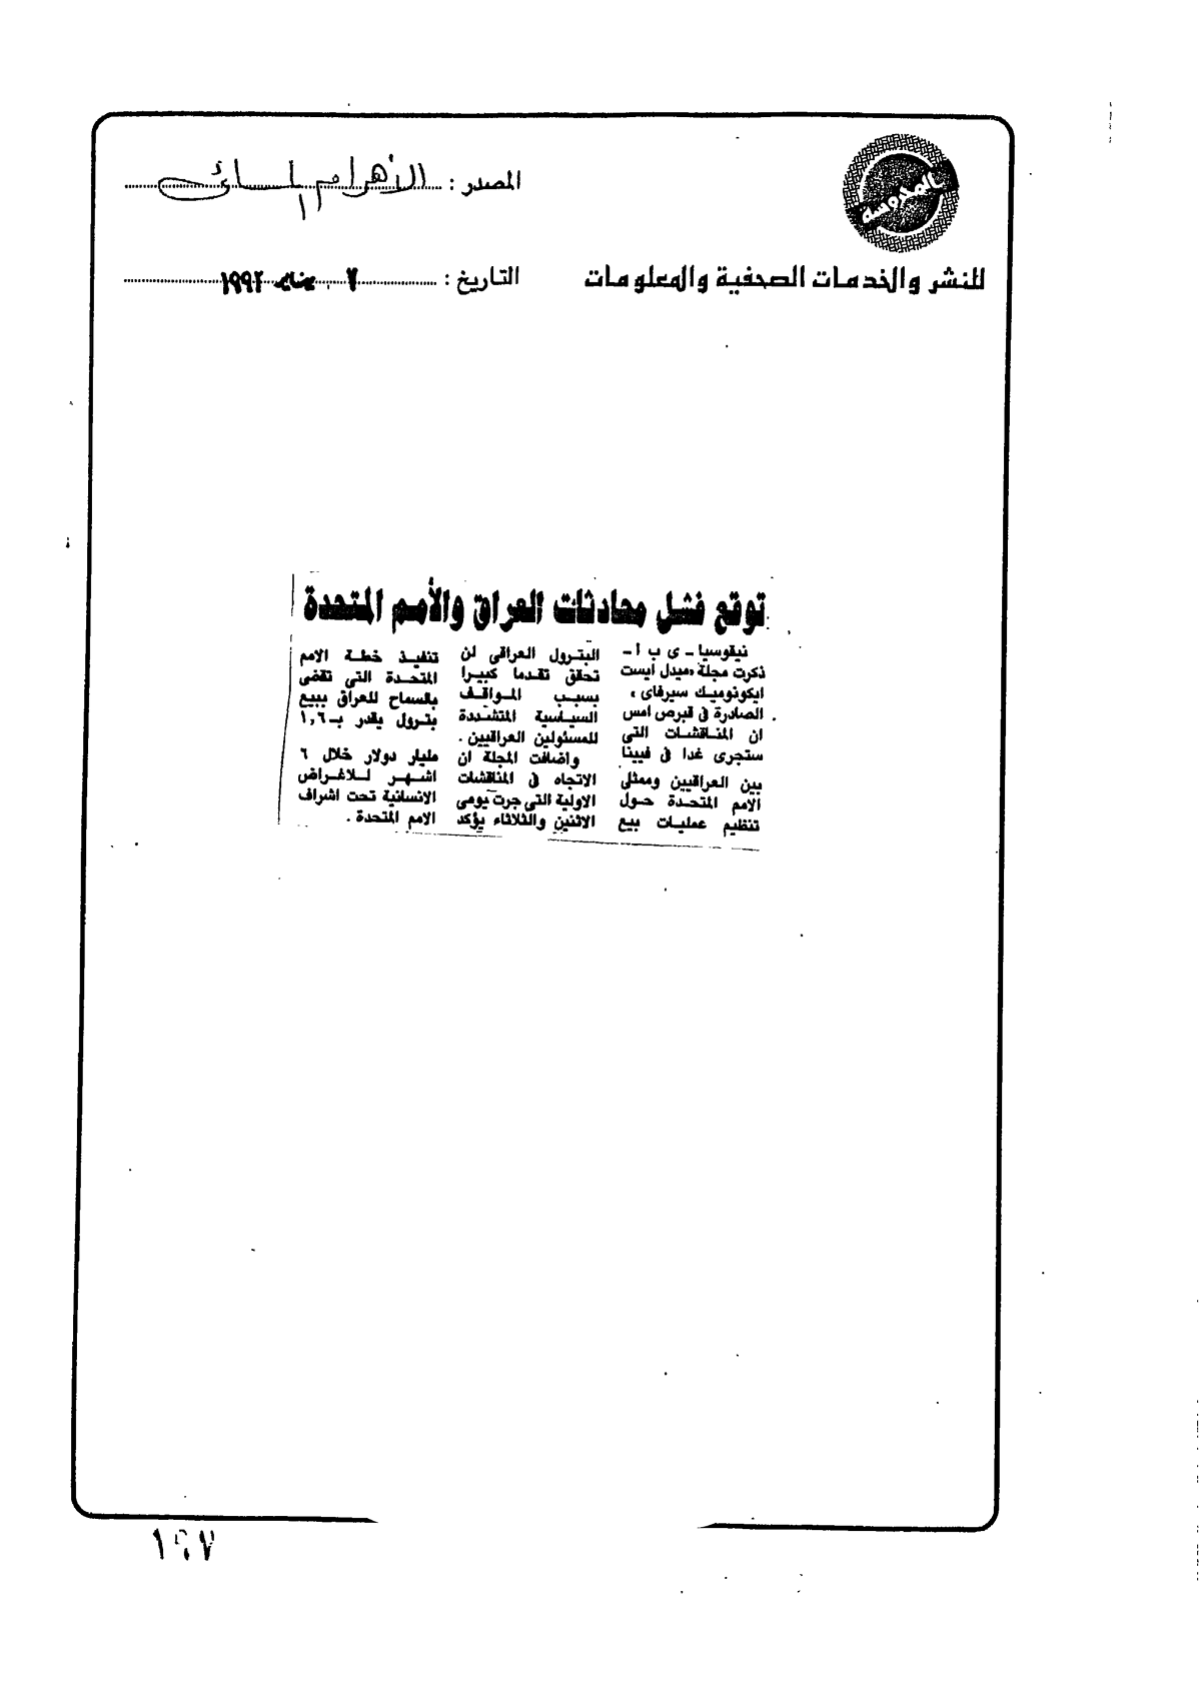 المدوسة
للنشر والخدمات الصحفية والمعلومات
المصدر : الأهرام المسائى
التاريخ : ٧ يناير ١٩٩٢
توقع فشل محادثات العراق والأمم المتحدة
نيقوسيا - ى ب ا -
ذكرت مجلة «ميدل ايست
ايكونوميك سيرفاى»
الصادرة فى قبرص امس
ان المناقشات التى
ستجرى غدا فى فيينا
بين العراقيين وممثلى
الامم المتحدة حول
تنظيم عمليات بيع
البترول العراقى لن
تحقق تقدما كبيرا
بسبب المواقف
السياسية المتشددة
للمسئولين العراقيين .
واضافت المجلة ان
الاتجاه فى المناقشات
الاولية التى جرت يومى
الاثنين والثلاثاء يؤكد
تنفيذ خطة الامم
المتحدة التى تقضى
بالسماح للعراق ببيع
بترول يقدر بـ ١,٦
مليار دولار خلال ٦
اشهر للاغراض
الانسانية تحت اشراف
الامم المتحدة .